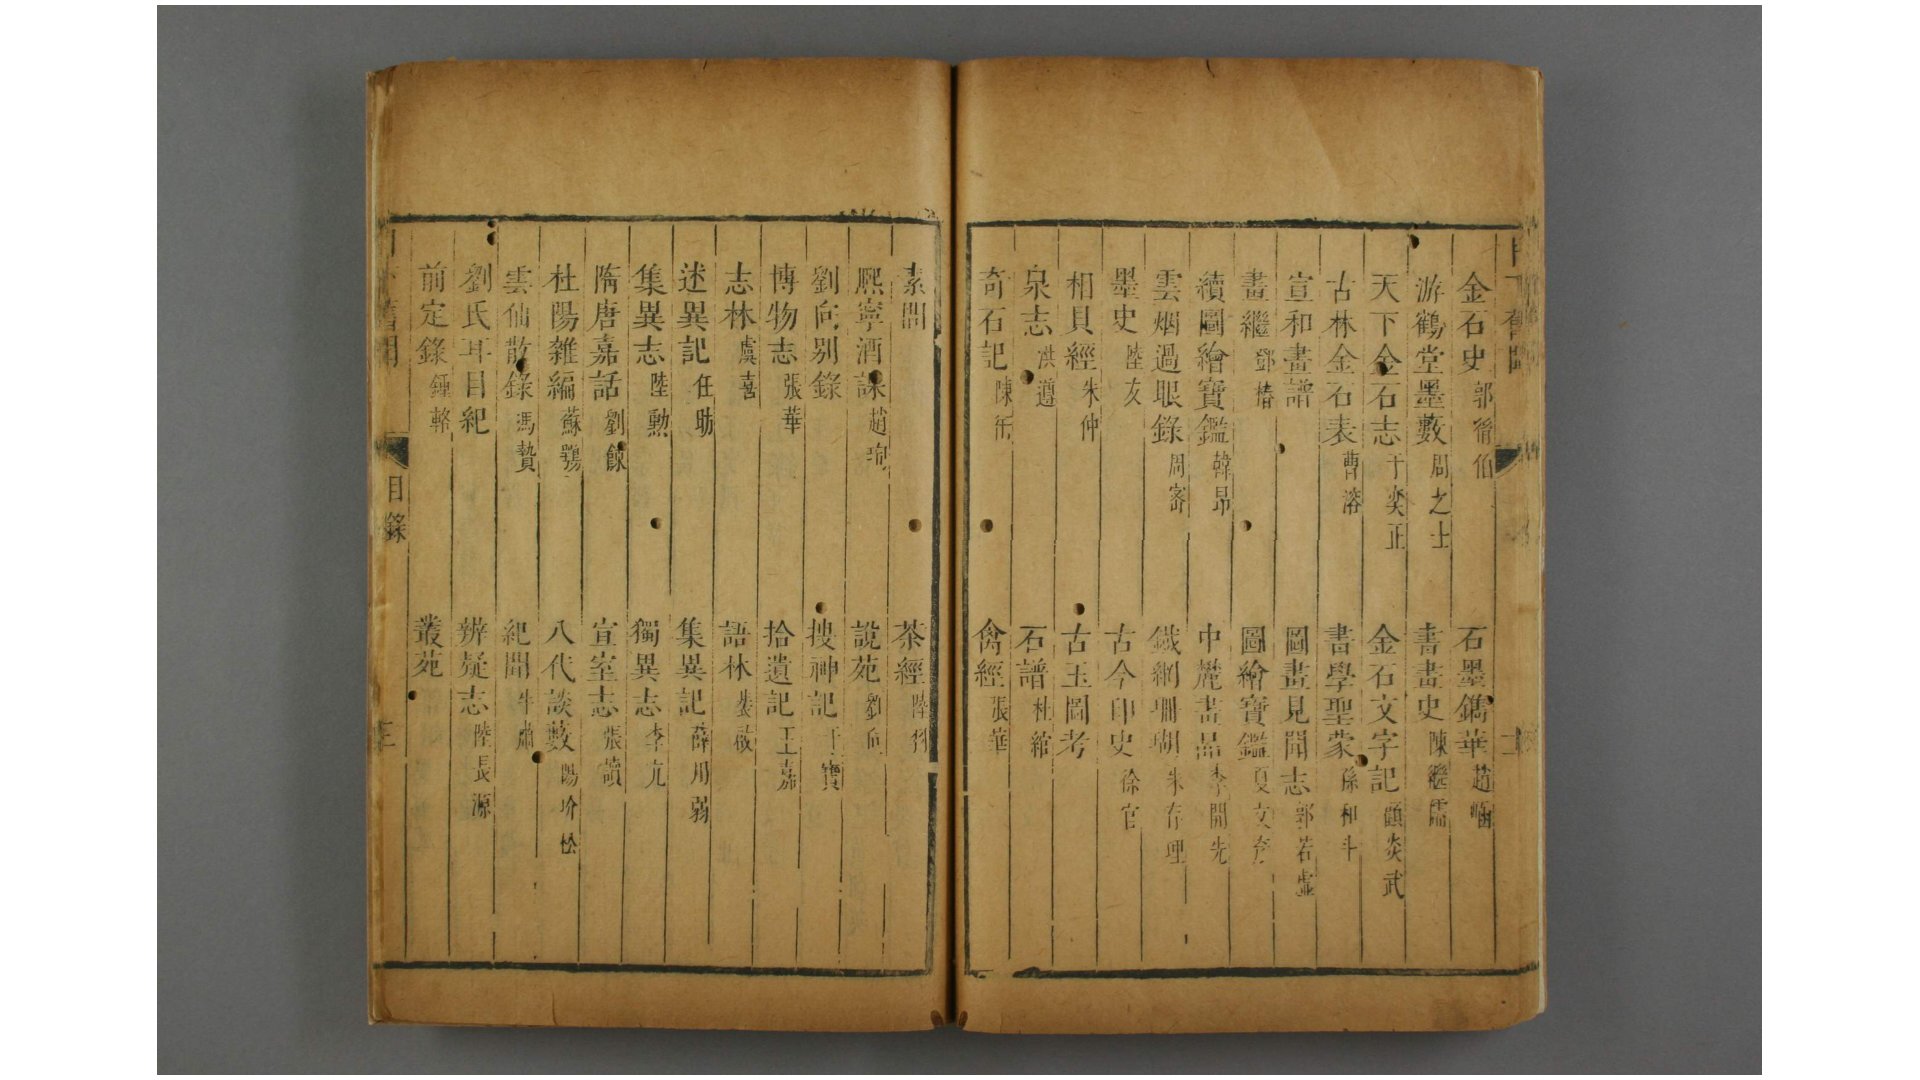 金石史 郭 伯 石墨鐫華 趙崡
游鶴堂墨藪 周之士 書畫史 陳繼儒
天下金石志 于奕正 金石文字記 顧炎武
古林金石表 曹溶 書學聖蒙 孫和斗
宣和畫譜 圖畫見聞志 郭若虛
畫繼 鄧椿 圖繪寶鑑 夏文彥
續圖繪寶鑑 韓昂 中麓畫品 李開先
雲烟過眼錄 周密 鐵網珊瑚 朱存理
墨史 陸友 古今印史 徐官
相貝經 朱仲 古玉圖考
泉志 洪遵 石譜 杜綰
奇石記 陳 禽經 張華
素問 茶經 陸羽
熙寧酒課 趙珣 說苑 劉向
劉向別錄 搜神記 干寶
博物志 張華 拾遺記 王嘉
志林 虞喜 語林 裴啟
述異記 任昉 集異記 薛用弱
集異志 陸勲 獨異志 李亢
隋唐嘉話 劉餗 宣室志 張讀
杜陽雜編 蘇鶚 八代談藪 陽玠松
雲仙散錄 馮贄 紀聞 牛肅
劉氏耳目紀 辨疑志 陸長源
前定錄 鍾輅 叢苑
日下舊聞 目錄 三